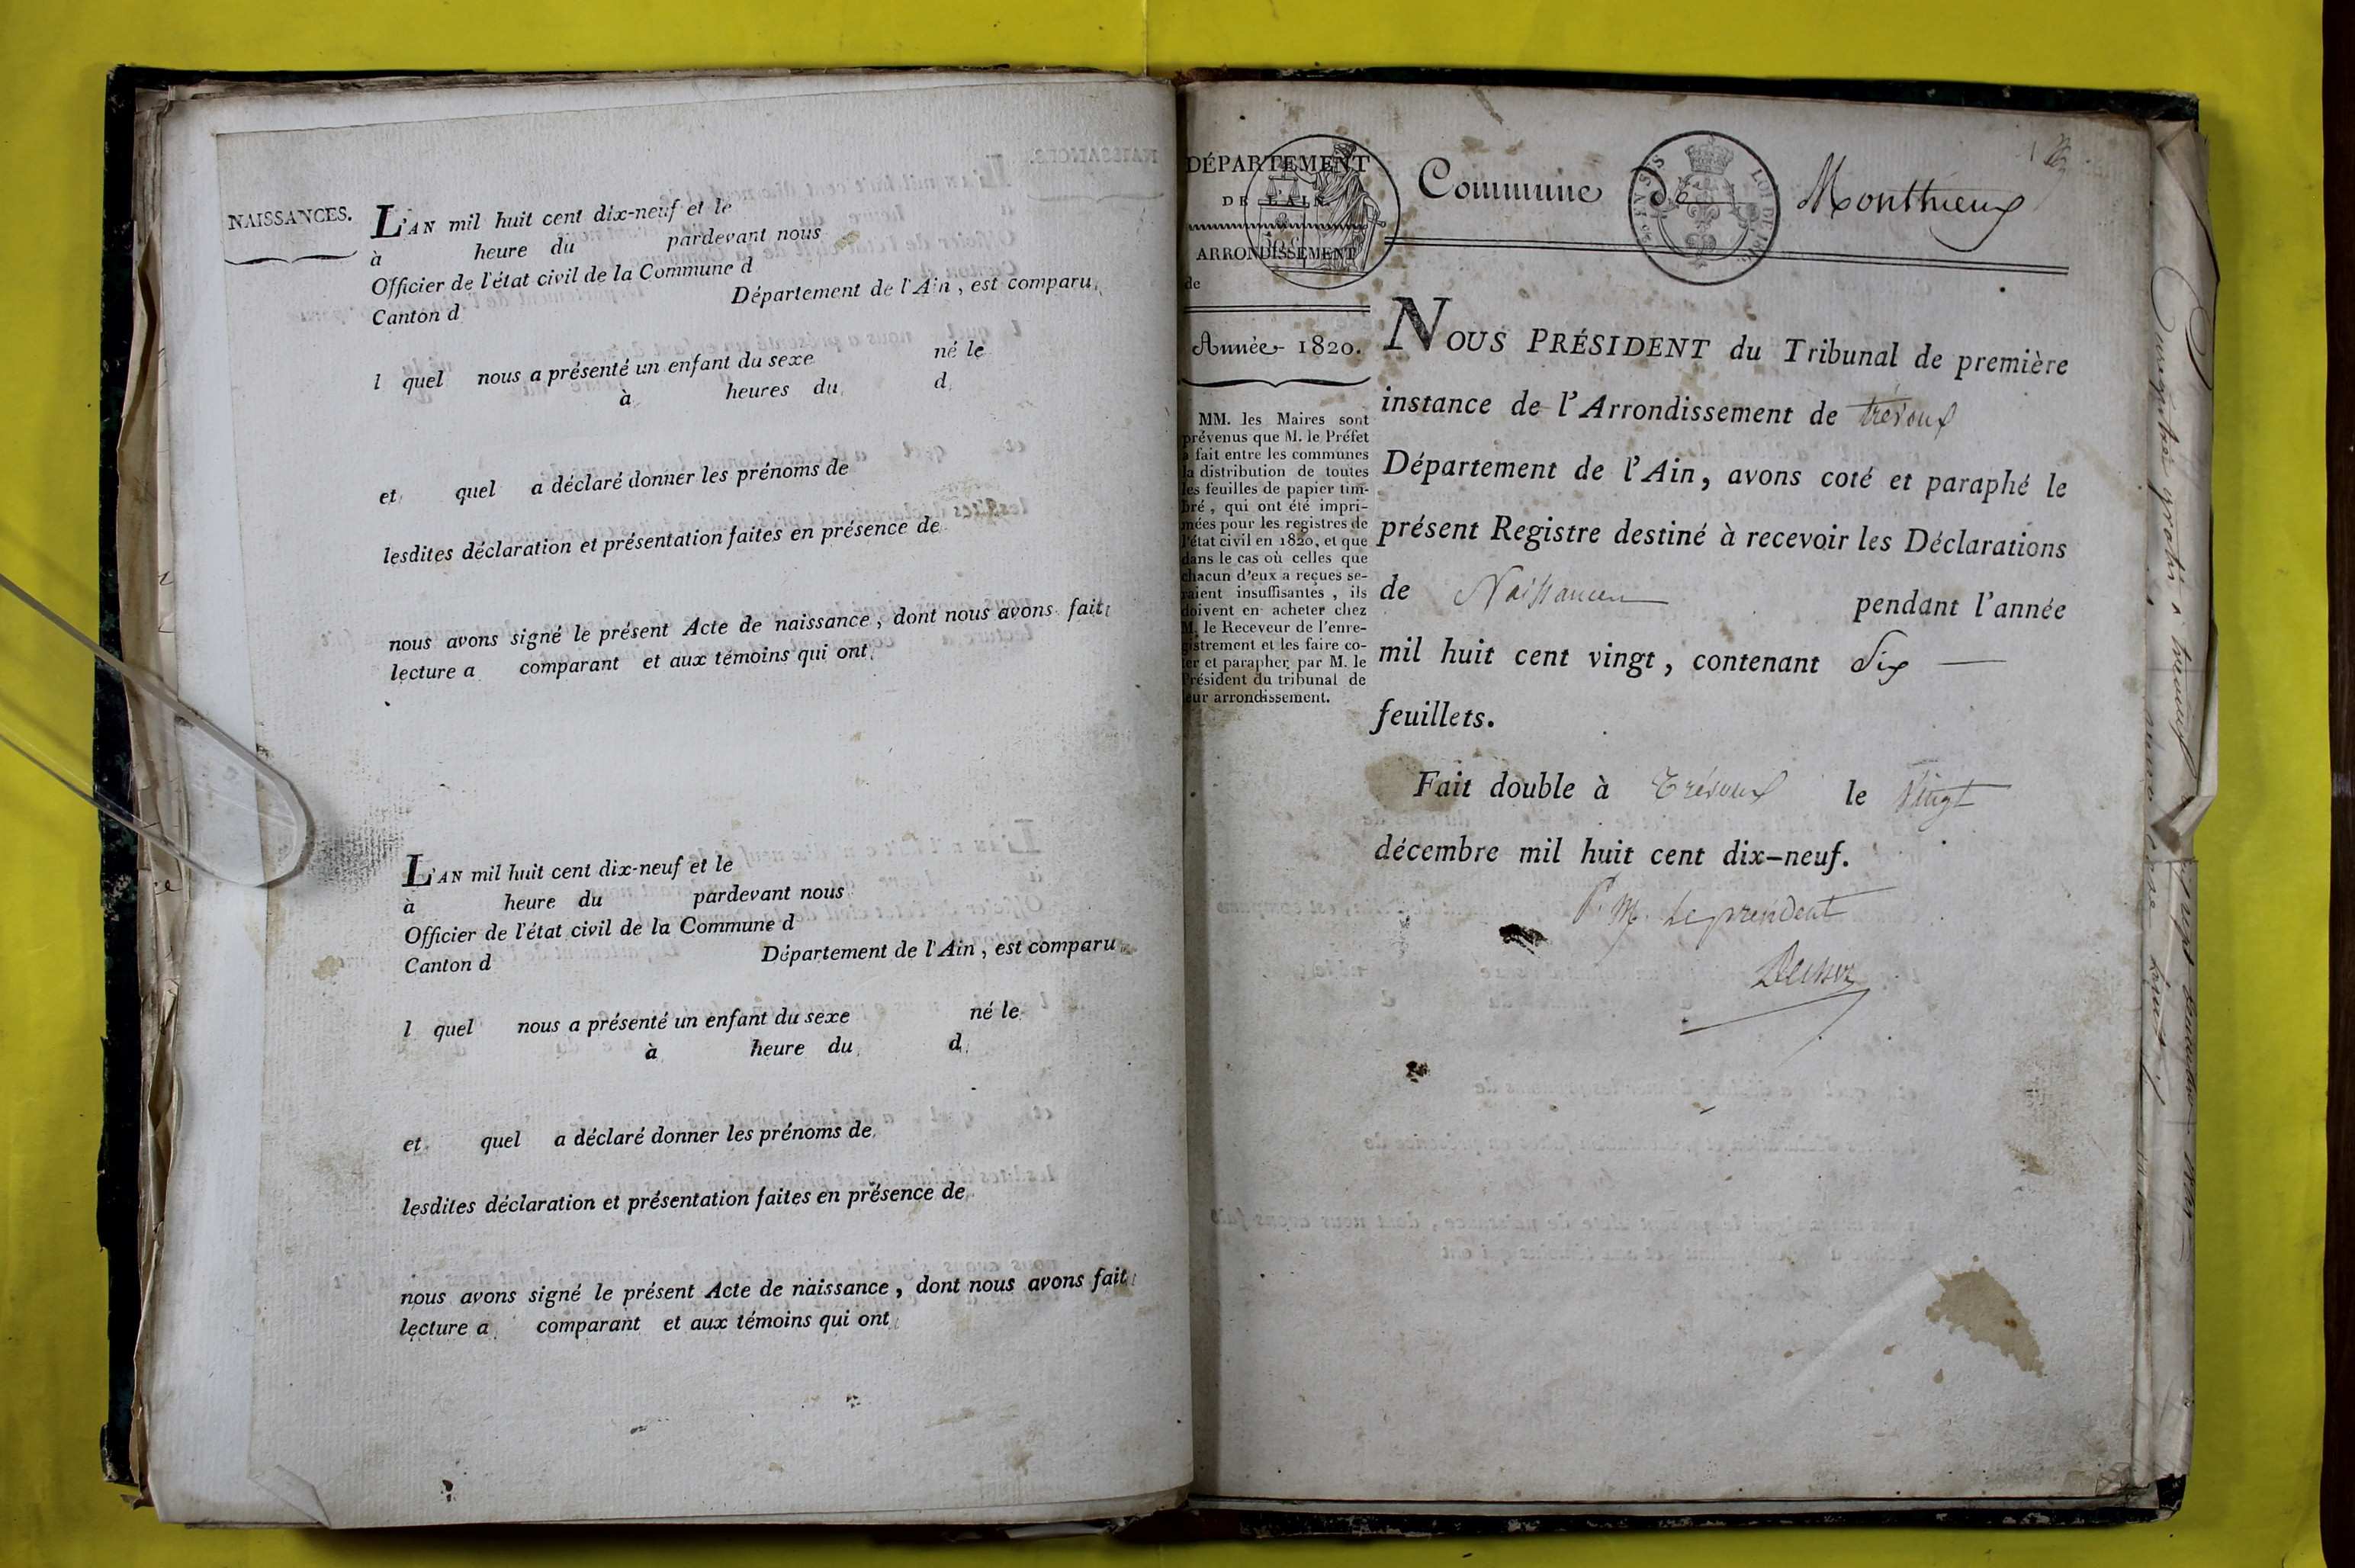 NAISSANCES.
L'AN mil huit cent dix-neuf et le
à heure du pardevant nous
Officier de l'état civil de la Commune d
Canton d Département de l'Ain, est comparu
l quel nous a présenté un enfant du sexe né le
à heures du d
et quel a déclaré donner les prénoms de
lesdites déclaration et présentation faites en présence de
nous avons signé le présent Acte de naissance, dont nous avons fait
lecture a comparant et aux témoins qui ont
L'AN mil huit cent dix-neuf et le
à heure du pardevant nous
Officier de l'état civil de la Commune d
Canton d Département de l'Ain, est comparu
l quel nous a présenté un enfant du sexe né le
à heure du d
et quel a déclaré donner les prénoms de
lesdites déclaration et présentation faites en présence de
nous avons signé le présent Acte de naissance, dont nous avons fait
lecture a comparant et aux témoins qui ont
DÉPARTEMENT
DE L'AIN.
ARRONDISSEMENT
de
Année 1820.
MM. les Maires sont
prévenus que M. le Préfet
a fait entre les communes
la distribution de toutes
les feuilles de papier tim-
bré, qui ont été impri-
mées pour les registres de
l'état civil en 1820, et que
dans le cas où celles que
chacun d'eux a reçues se-
raient insuffisantes, ils
doivent en acheter chez
M. le Receveur de l'enre-
gistrement et les faire co-
ter et parapher par M. le
Président du tribunal de
leur arrondissement.
Commune de Monthieux
NOUS PRÉSIDENT du Tribunal de première
instance de l'Arrondissement de trévoux
Département de l'Ain, avons coté et paraphé le
présent Registre destiné à recevoir les Déclarations
de Naissances pendant l'année
mil huit cent vingt, contenant Six
feuillets.
Fait double à Trévoux le Vingt
décembre mil huit cent dix-neuf.
P. M. Le president